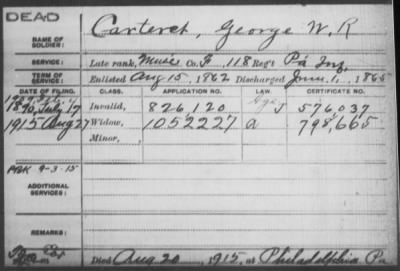 DEAD
NAME OF SOLDIER: Carteret, George W. R
SERVICE: Late rank, Music Co. F, 118 Reg't Pa Inf.
TERM OF SERVICE: Enlisted Aug 15, 1862 Discharged June 1, 1865
DATE OF FILING. CLASS. APPLICATION NO. LAW. CERTIFICATE NO.
1890, July, 17 Invalid, 826,120 J 576,037
1915 Aug 27 Widow, 1052227 a 798,665
Minor,
9-3-15
ADDITIONAL SERVICES:
REMARKS:
Died Aug 20, 1915, at Philadelphia Pa